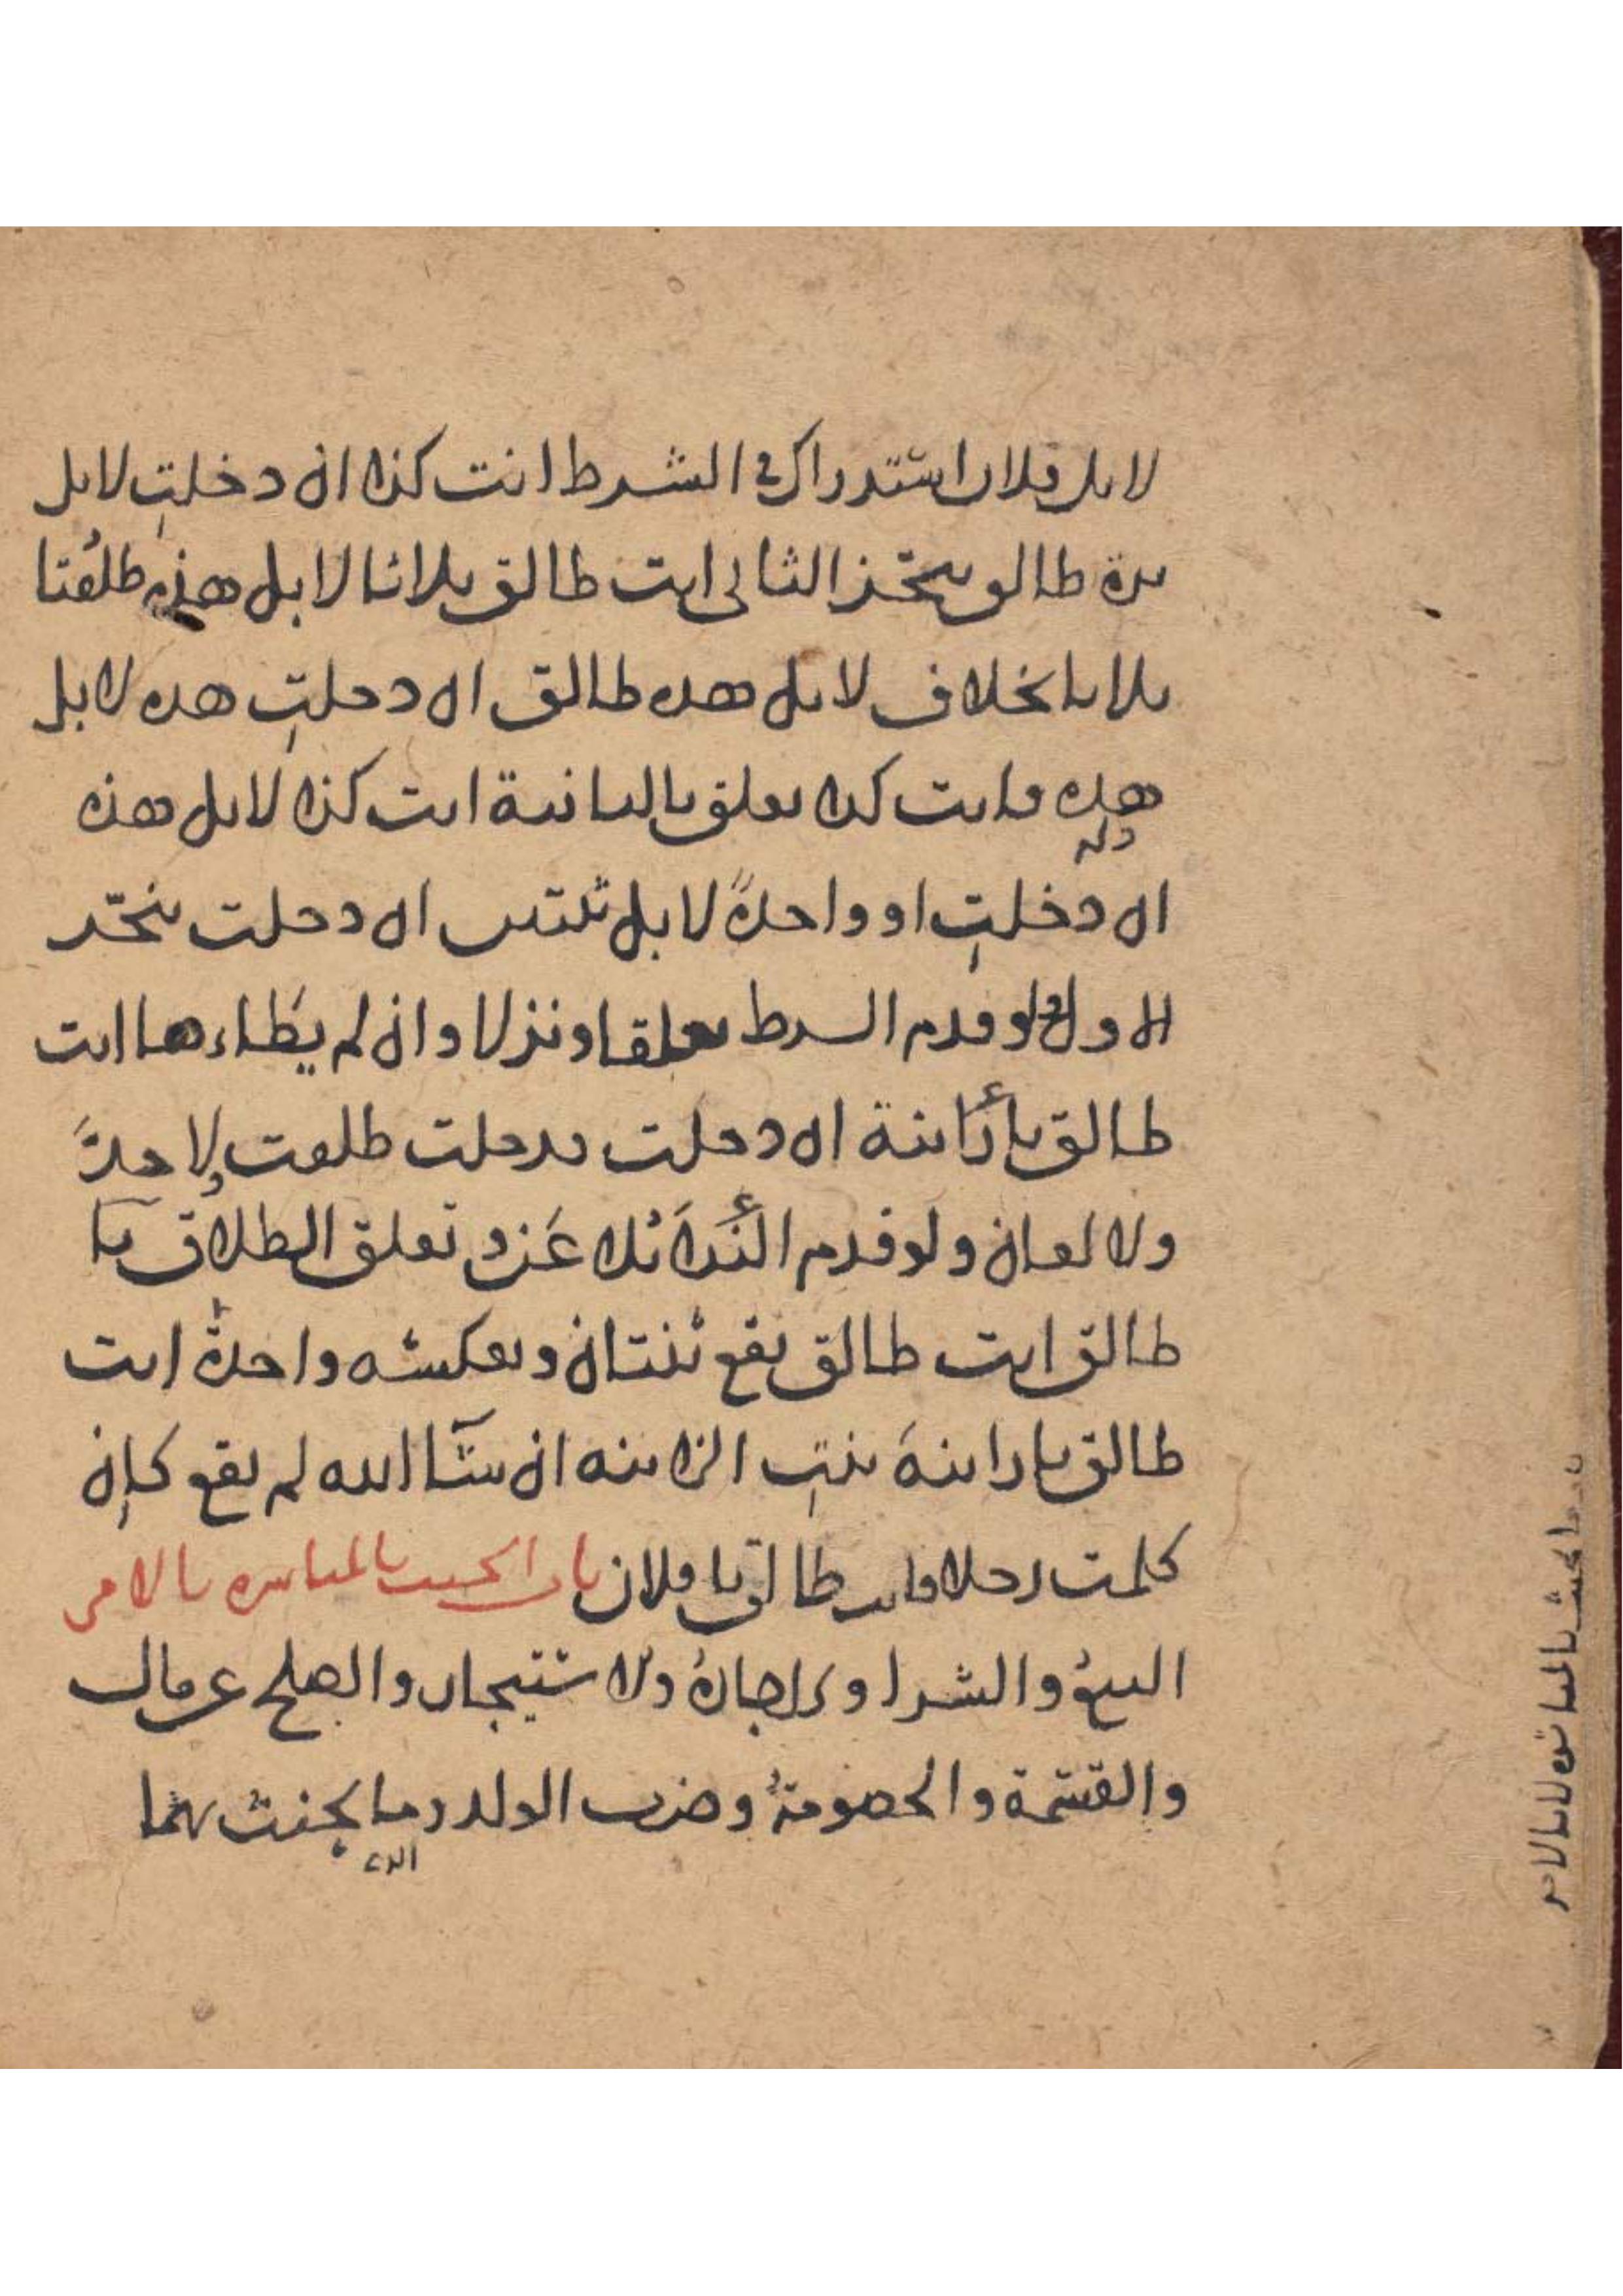 لا بل فلان استدراك في الشرط انت كذا ان دخلتِ لا بل
مرة طالق يتنجز الثاني انت طالق ثلاثا لا بل هذه طلقتا
ثلاثا بخلاف لا بل هذه طالق ان دخلتِ هذه لا بل
هذه فانت كذا تعلق بالثانية انت كذا لا بل هذه
ان دخلتِ او واحدةً لا بل ثنتين ان دخلت ينجز
الاول ولو قدم الشرط تعلقا ونزلا وان لم يطاءها انت
طالق يا زانية ان دخلت فدخلت طلقت ولا حدَّ
ولا لعان ولو قدم الندا تلاعَنَ وتعلق الطلاق يا
طالق انت طالق يقع ثنتان وبعكسه واحدة انت
طالق يا زانية بنت الزانيه ان شآ الله لم يقع كان
كلمت رجلا فانت طالق يا فلان باب الحنث بالمباشرة بالامر
البيع والشرا والاجارة والاستيجار والصلح عن مال
والقسمة والخصومة وضرب الولد ربما يحنث بهما
باب الحنث بالمباشرة لا بالامر